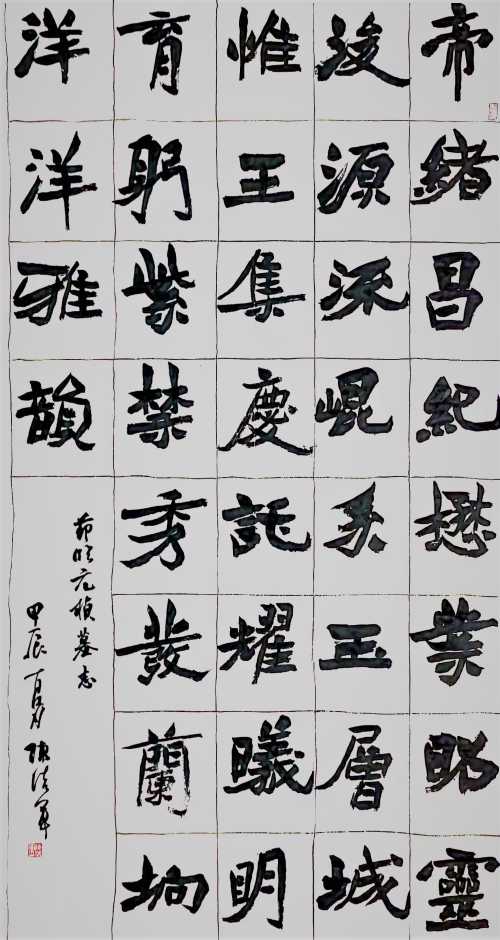 帝緒昌紀懋業昭靈
浚源流崐系玉層城
惟王集慶託耀曦明
育躬紫禁秀發蘭坰
洋洋雅韻
節臨元楨墓志
甲辰夏月